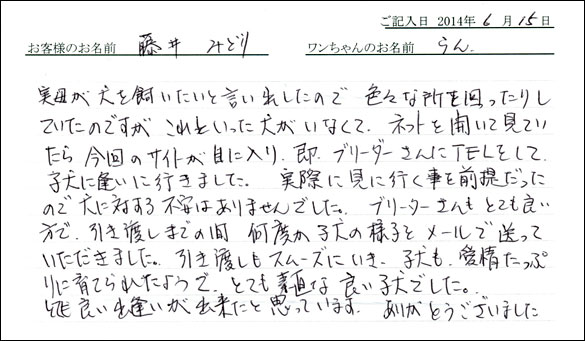 ご記入日 2014年 6 月 15 日
お客様のお名前 藤井 みどり ワンちゃんのお名前 らん
実母が犬を飼いたいと言い出したので 色々な所を回ったりし
ていたのですが これといった犬がいなくて、ネットを開いて見てい
たら 今回のサイトが目に入り、即、ブリーダーさんにTELをして、
子犬に逢いに行きました。 実際に見に行く事を前提だった
ので犬に対する不安はありませんでした。 ブリーダーさんもとても良い
方で、引き渡しまでの間 何度か子犬の様子をメールで送って
いただきました。引き渡しもスムーズにいき、子犬も、愛情たっぷ
りに育てられたようで、とても素直な良い子犬でした。
良い出逢いが出来たと思っています。 ありがとうございました